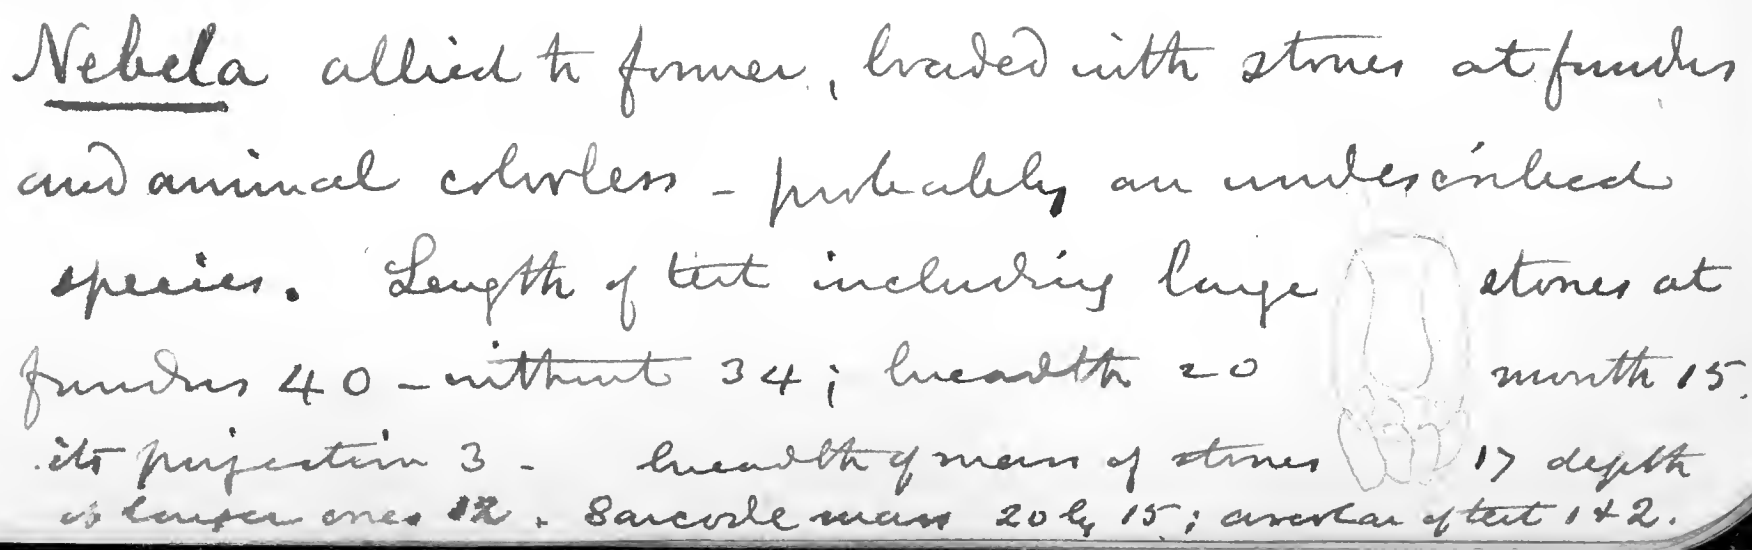 Nebela allied to former, loaded with stones at fundus
and animal colorless - probably an undescribed
species. Length of test including large stones at
fundus 40 - without 34; breadth 20 mouth 15.
its projection 3 - breadth of mass of stones 17 depth
of larger ones 12. Sarcode mass 20 by 15; areolae of test 1 & 2.